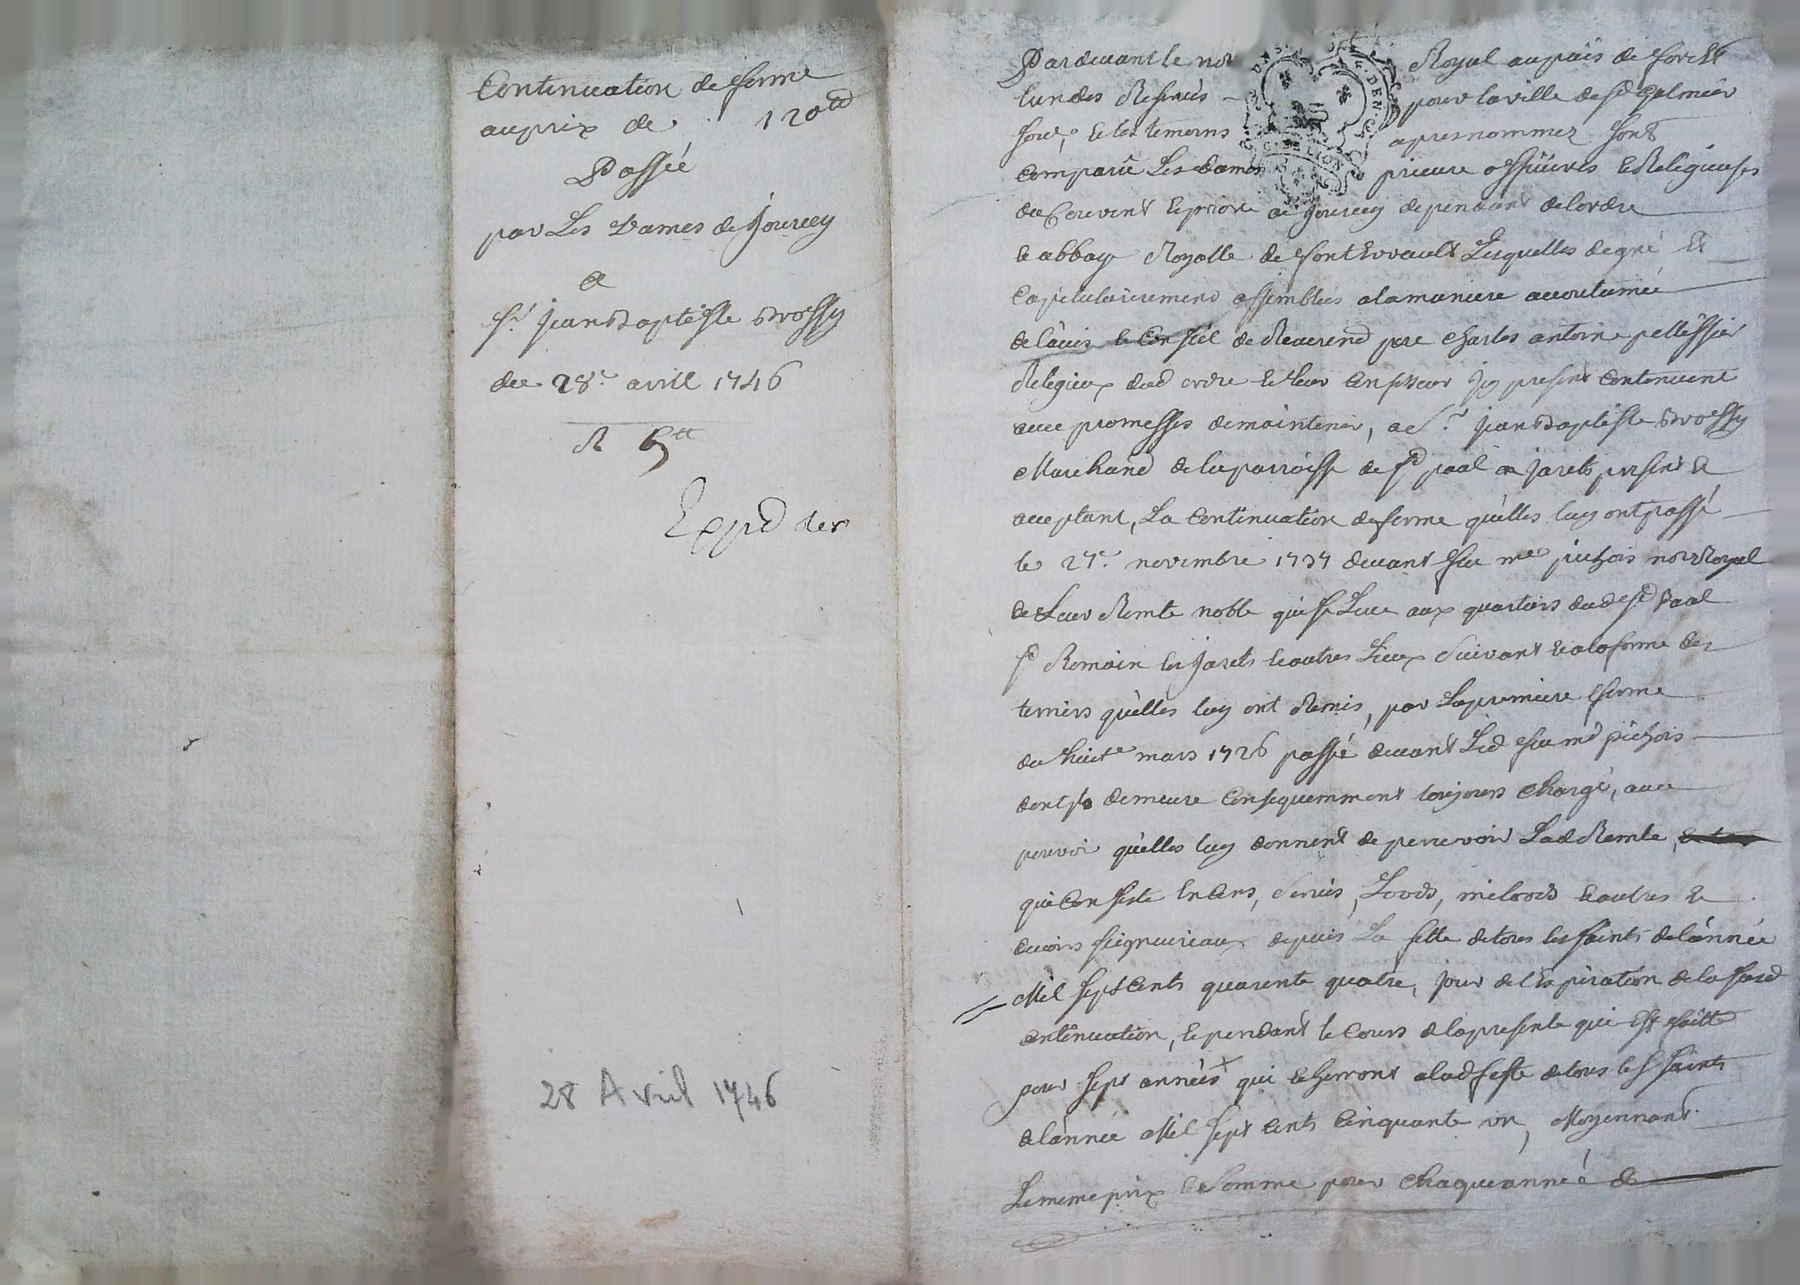 Continuation de ferme
au prix de 120tt
Passée
par Les Dames de Jourcey
a
Sr. jean Baptiste Brossy
du 28e avril 1746
R 5tt
Expd
28 Avril 1746
Pardevant le not Royal au païs de forest
lun des Reservés pour la ville de st galmier
sousé, et les temoins apres nommez sont
comparu Les dames prieure officieres et Religieuses
du Couvent et prioré de Jourcey dependant de lordre
et abbaye Royalle de fontevrault Lesquelles de gré et
Capitulairement assemblées a la maniere accoutumée
de l'avis et Conseil de Reverend pere charles antoine pellissier
Religieux dud ordre et leur Confesseur jcy present Continuent
avec promesses de maintenir, a sr. jean Baptiste Brossy
Marchand de la parroisse de st paal en jarets present et
acceptant, La Continuation de ferme qu'elles luy ont passé
le 27e. novembre 1737 devant feu me pichois notre Royal
de Leur Rente noble qui se Leve aux quartiers dud st Paal
st Romain en Jarets et autres Lieux suivant et a la forme des
terriers qu'elles luy ont Remis, par La premiere ferme
du huite mars 1726 passé devant Led feu me pichois
dont jl demeure Consequemment toujours chargé, avec
pouvoir qu'elles luy donnent de percevoir Lad Rente,
qui Consiste en Cens, servis, Lovds, milovds et autres
devoirs seigneuriaux depuis La fette de tous les saints de l'année
Mil sept Cents quarente quatre, jour de l'Expiration de la susd
Continuation, et pendant le Cours de la presente qui est faitte
pour sept années qui echerront a lad feste de tous les saints
de l'année Mil sept Cents Cinquante un, Moyennant
Le meme prix et somme pour chaque année de